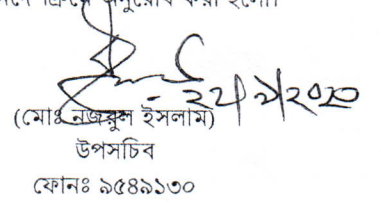 অনুরোধ করা হলো।
২২/৯/২০২০
(মোঃ নজরুল ইসলাম)
উপসচিব
ফোনঃ ৯৫৪৯১৩০